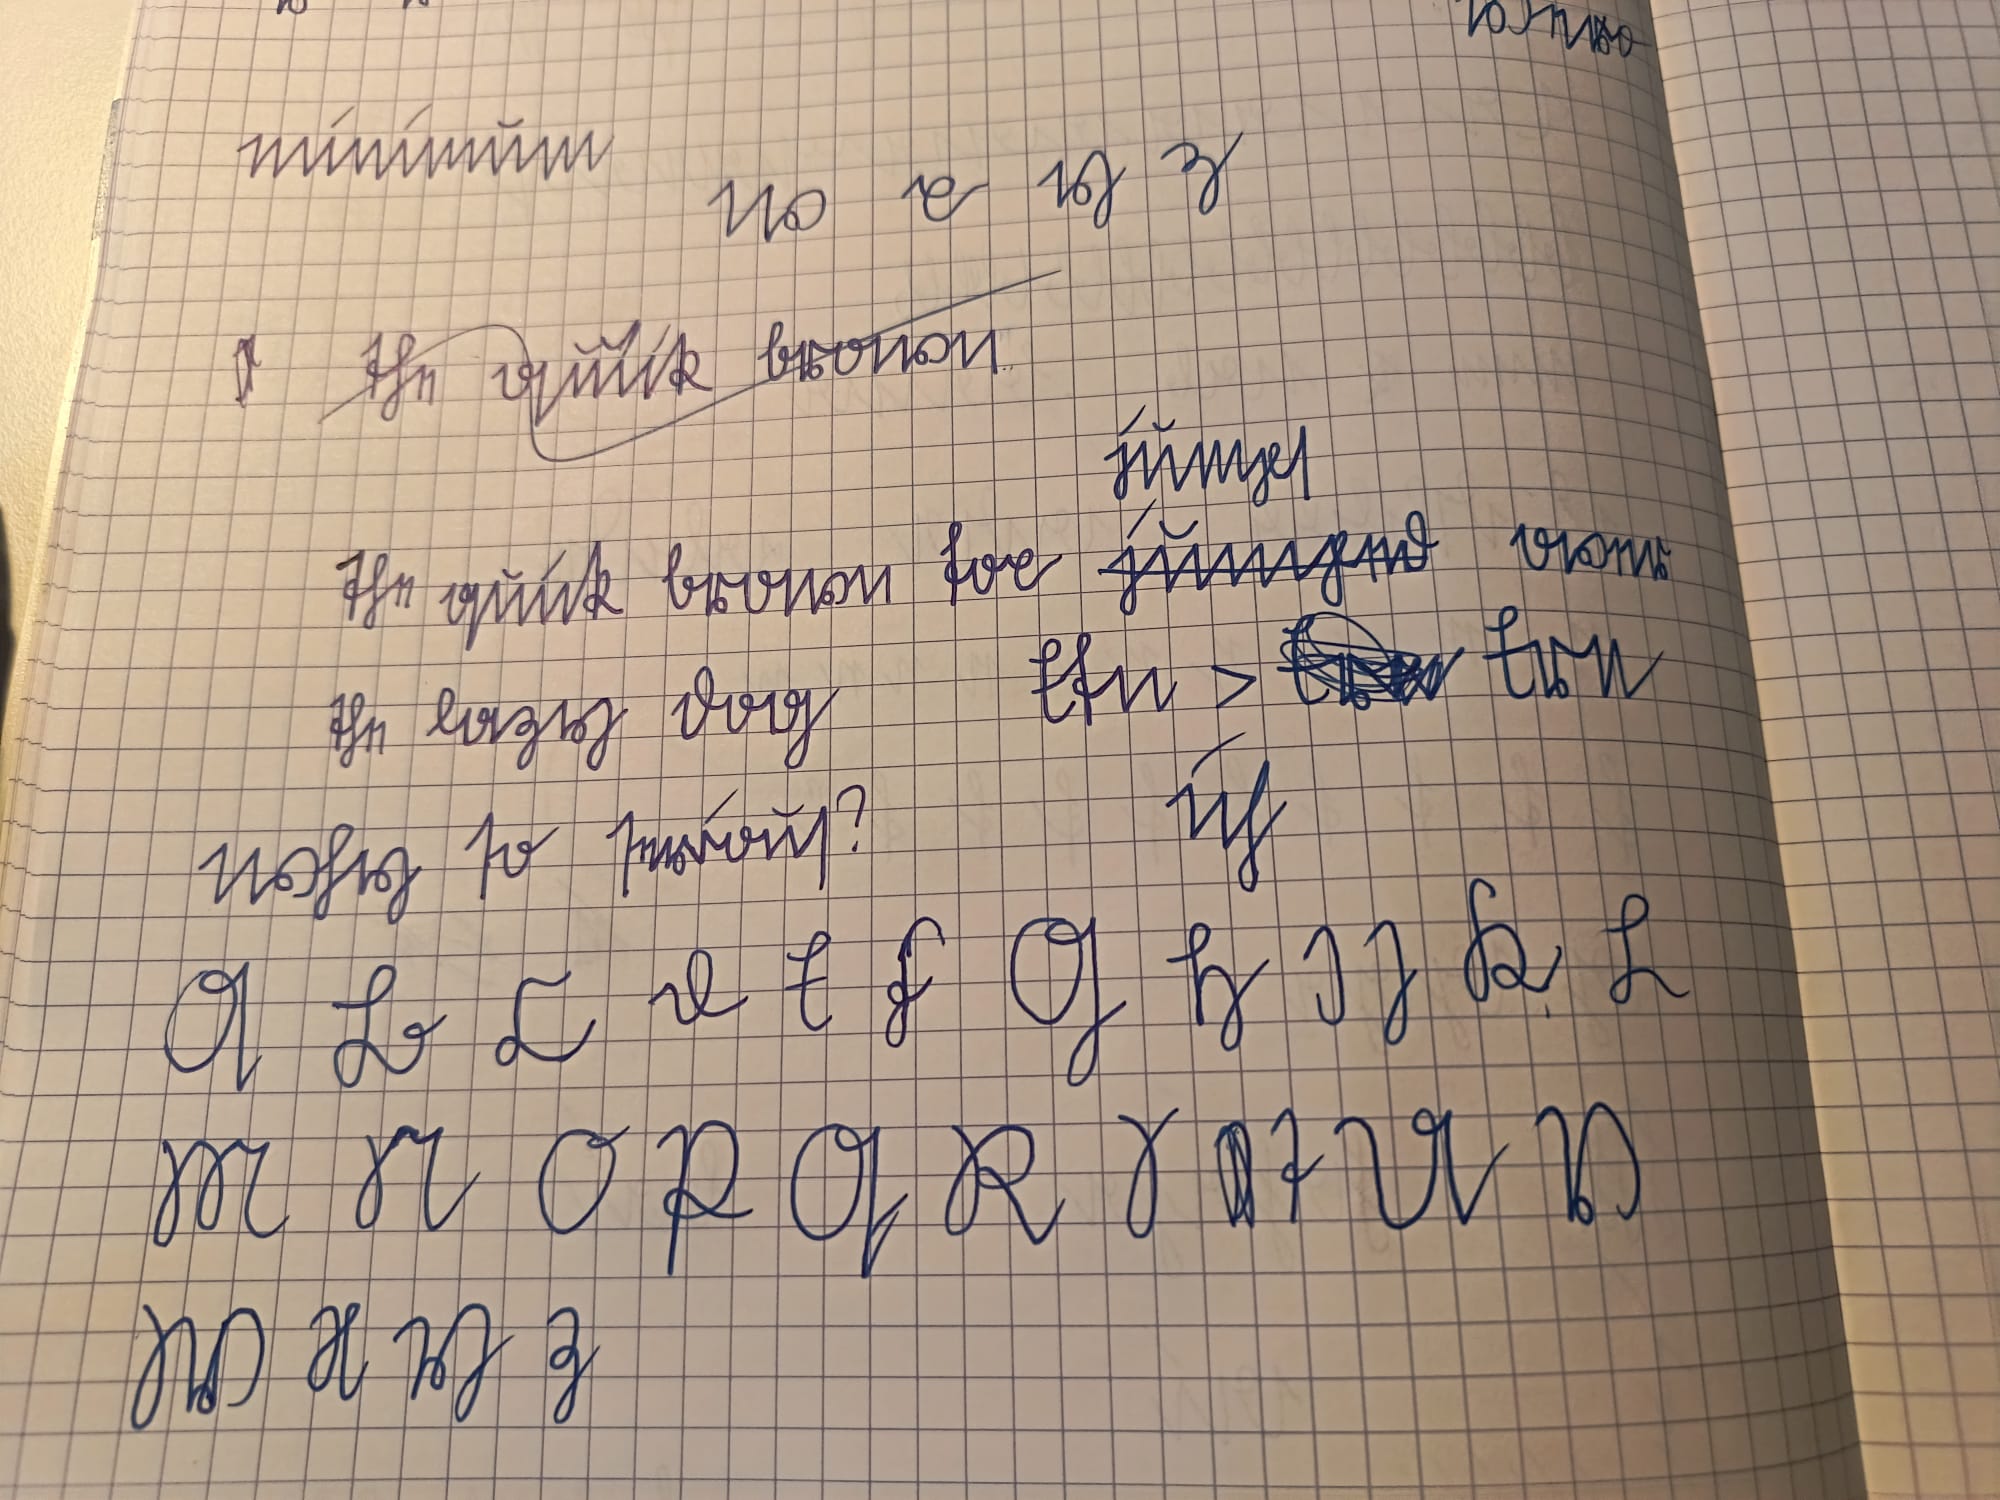 minimum
w x y z
the quick brown
jumps
the quick brown fox jumped over
the lazy dog
why so serious?
A B C D E F G H I J K L
M N O P Q R S T U V
W X Y Z